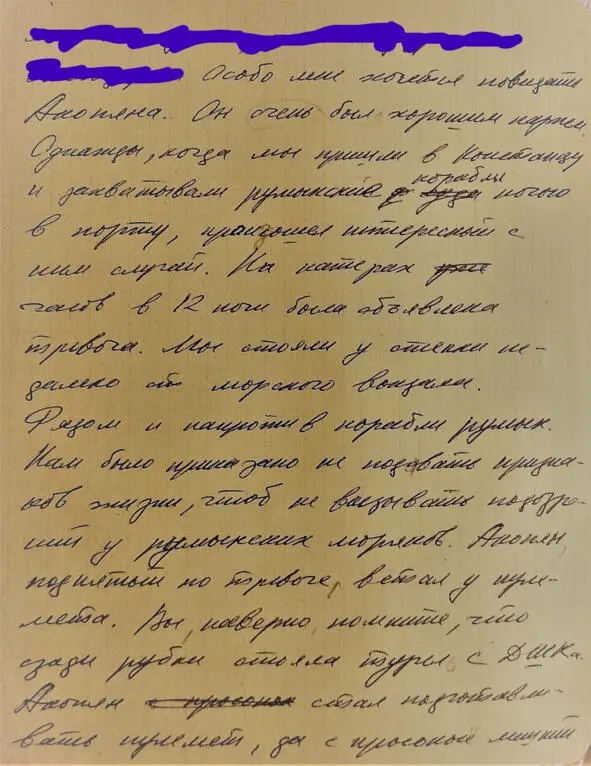 Особо мне хочется повидать
Акопяна. Он очень был хорошим парнем.
Однажды, когда мы пришли в Констанцу
и захватывали румынские корабли ночью
в порту, произошел интересный с
ним случай. На катерах
часов в 12 ночи была объявлена
тревога. Мы стояли у стенки не-
далеко от морского вокзала.
Рядом и напротив корабли румын.
Нам было приказано не подавать призна-
ков жизни, чтоб не вызывать подозре-
ний у румынских моряков. Акопян,
поднятый по тревоге, встал у пуле-
мета. Вы, наверно, помните, что
сзади рубки стояла турель с ДШКа.
Акопян с просонок стал подготавли-
вать пулемет, да с просонок